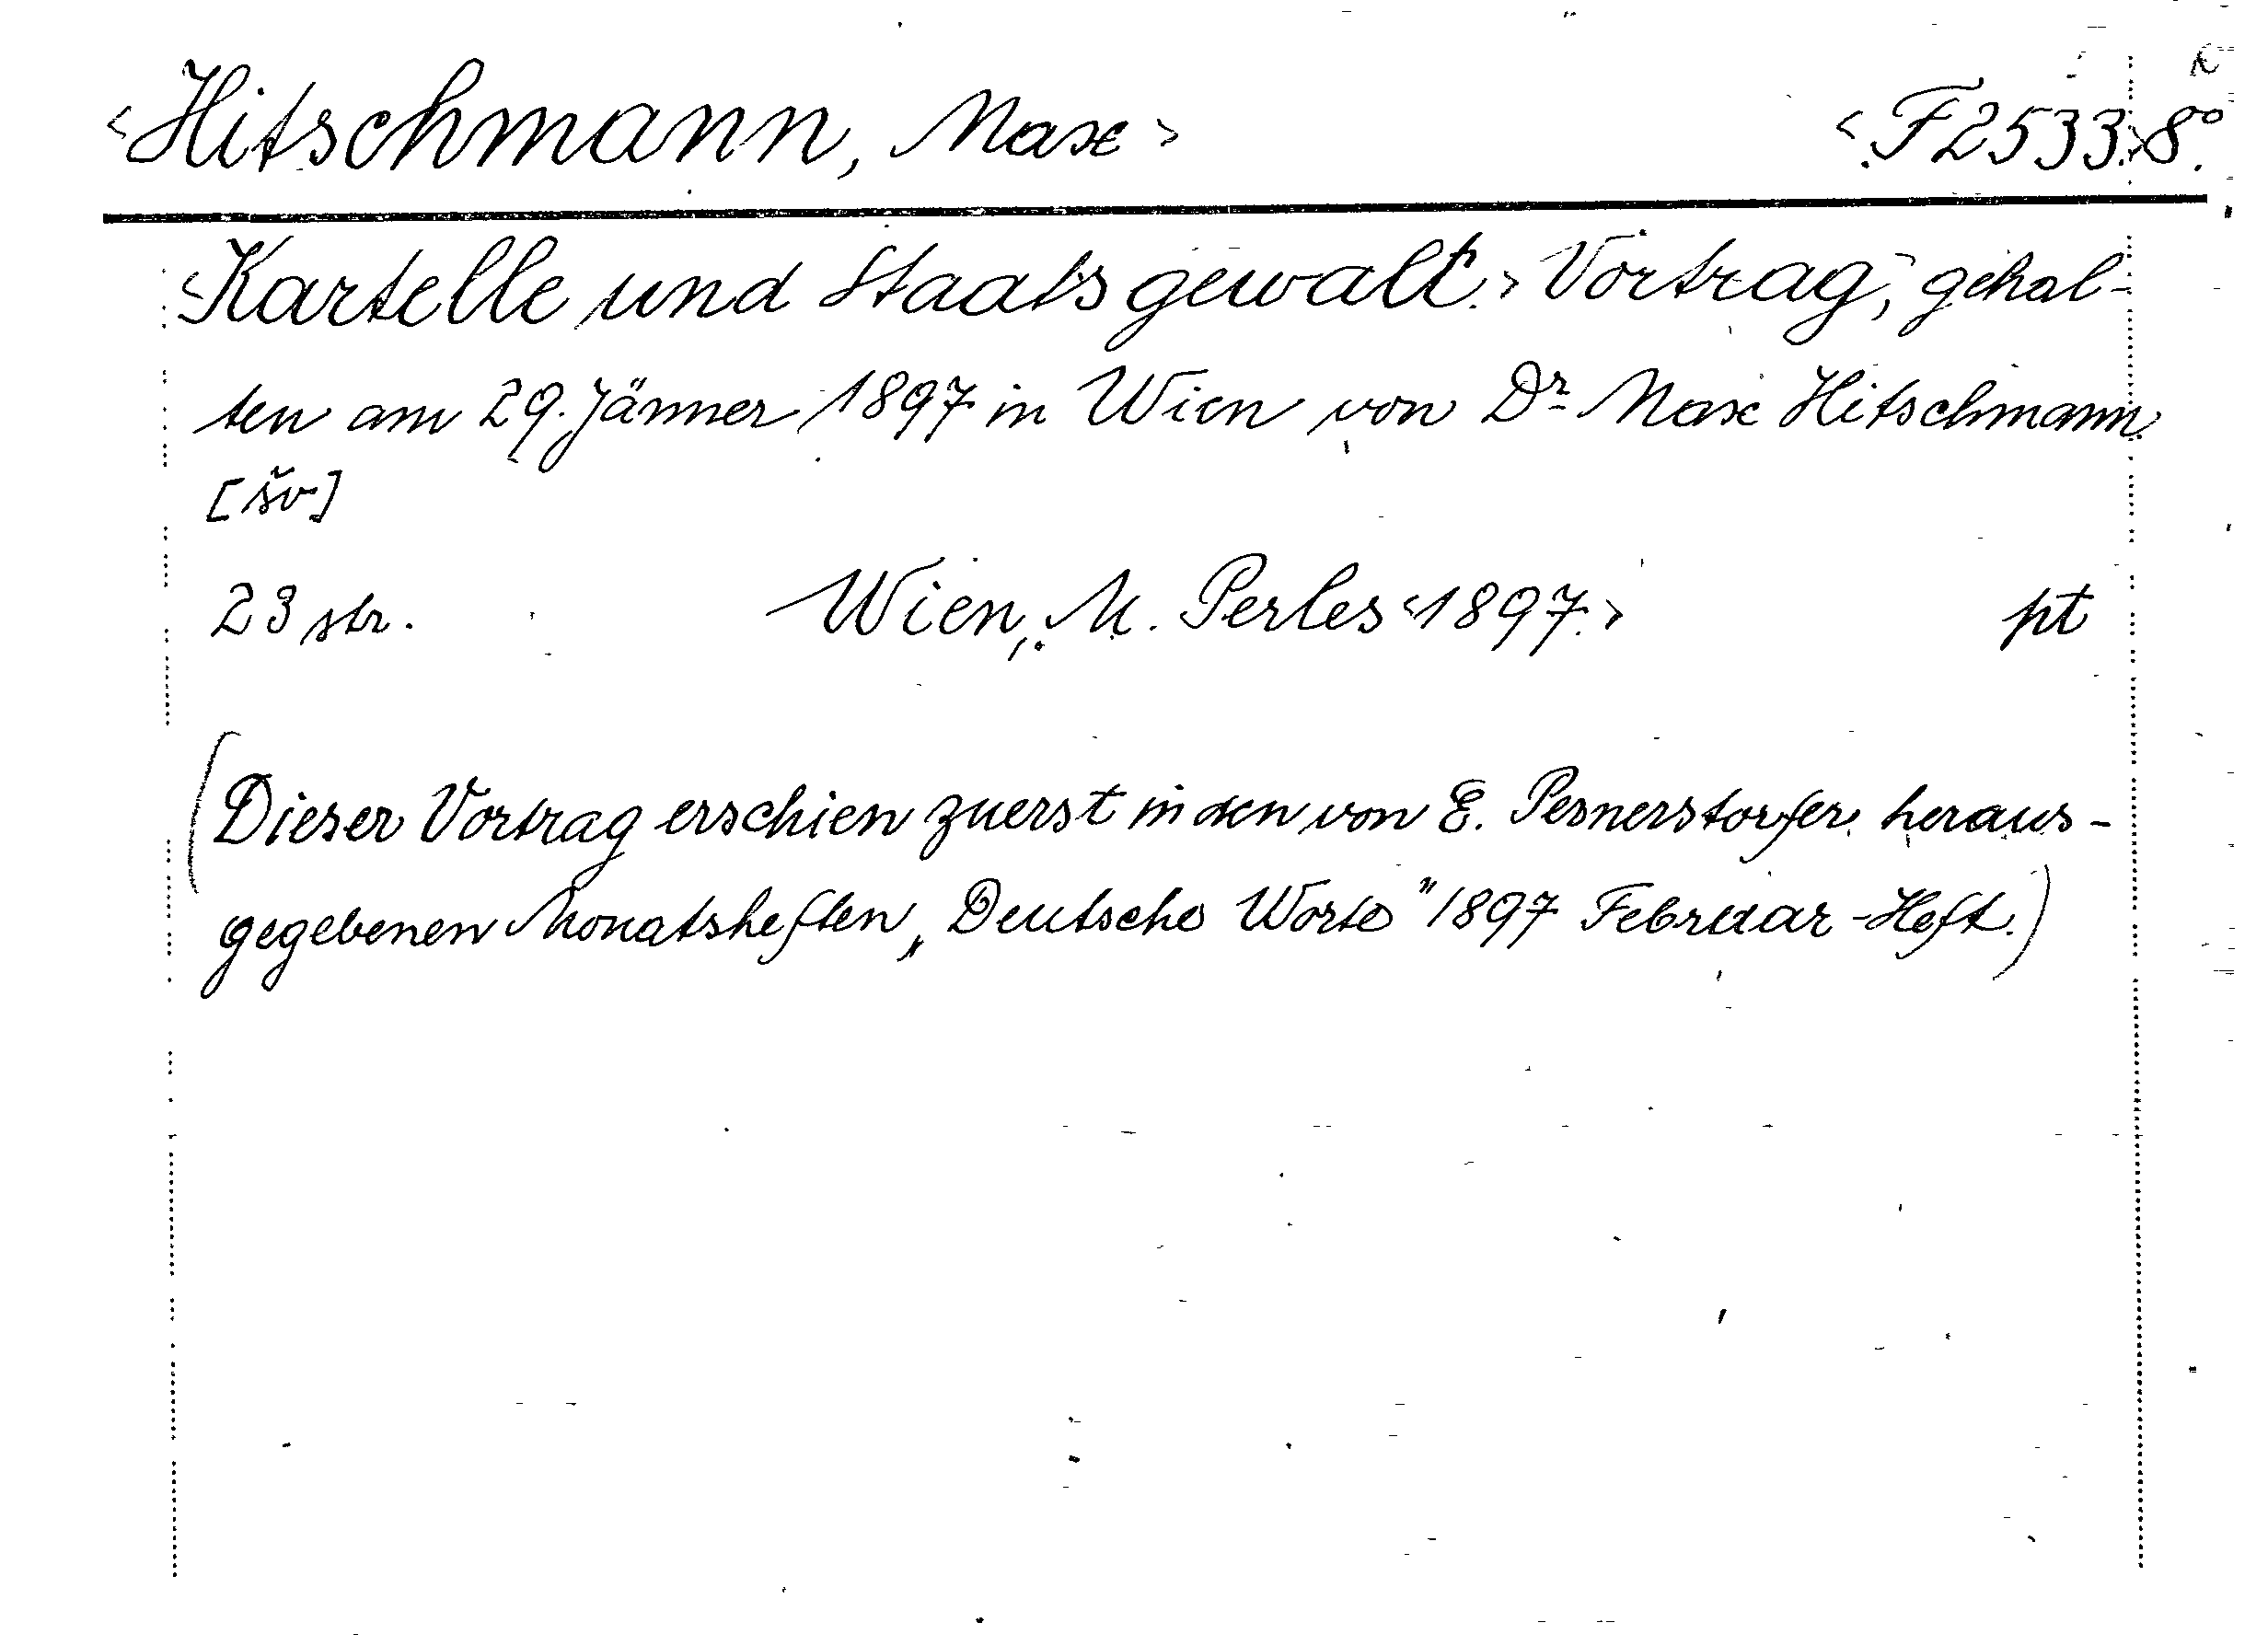 ‹Hitschmann, Max› ‹F 2533.›8°.
‹Kartelle und Staatsgewalt.› Vortrag, gehal-
ten am 29. Jänner 1897 in Wien von Dr. Max Hitschmann.
[šv]
23 str. Wien, M. Perles ‹1897.› pt
(Dieser Vortrag erschien zuerst in den von E. Pernerstorfer heraus-
gegebenen Monatsheften „Deutsche Worte" 1897 Februar-Heft.)